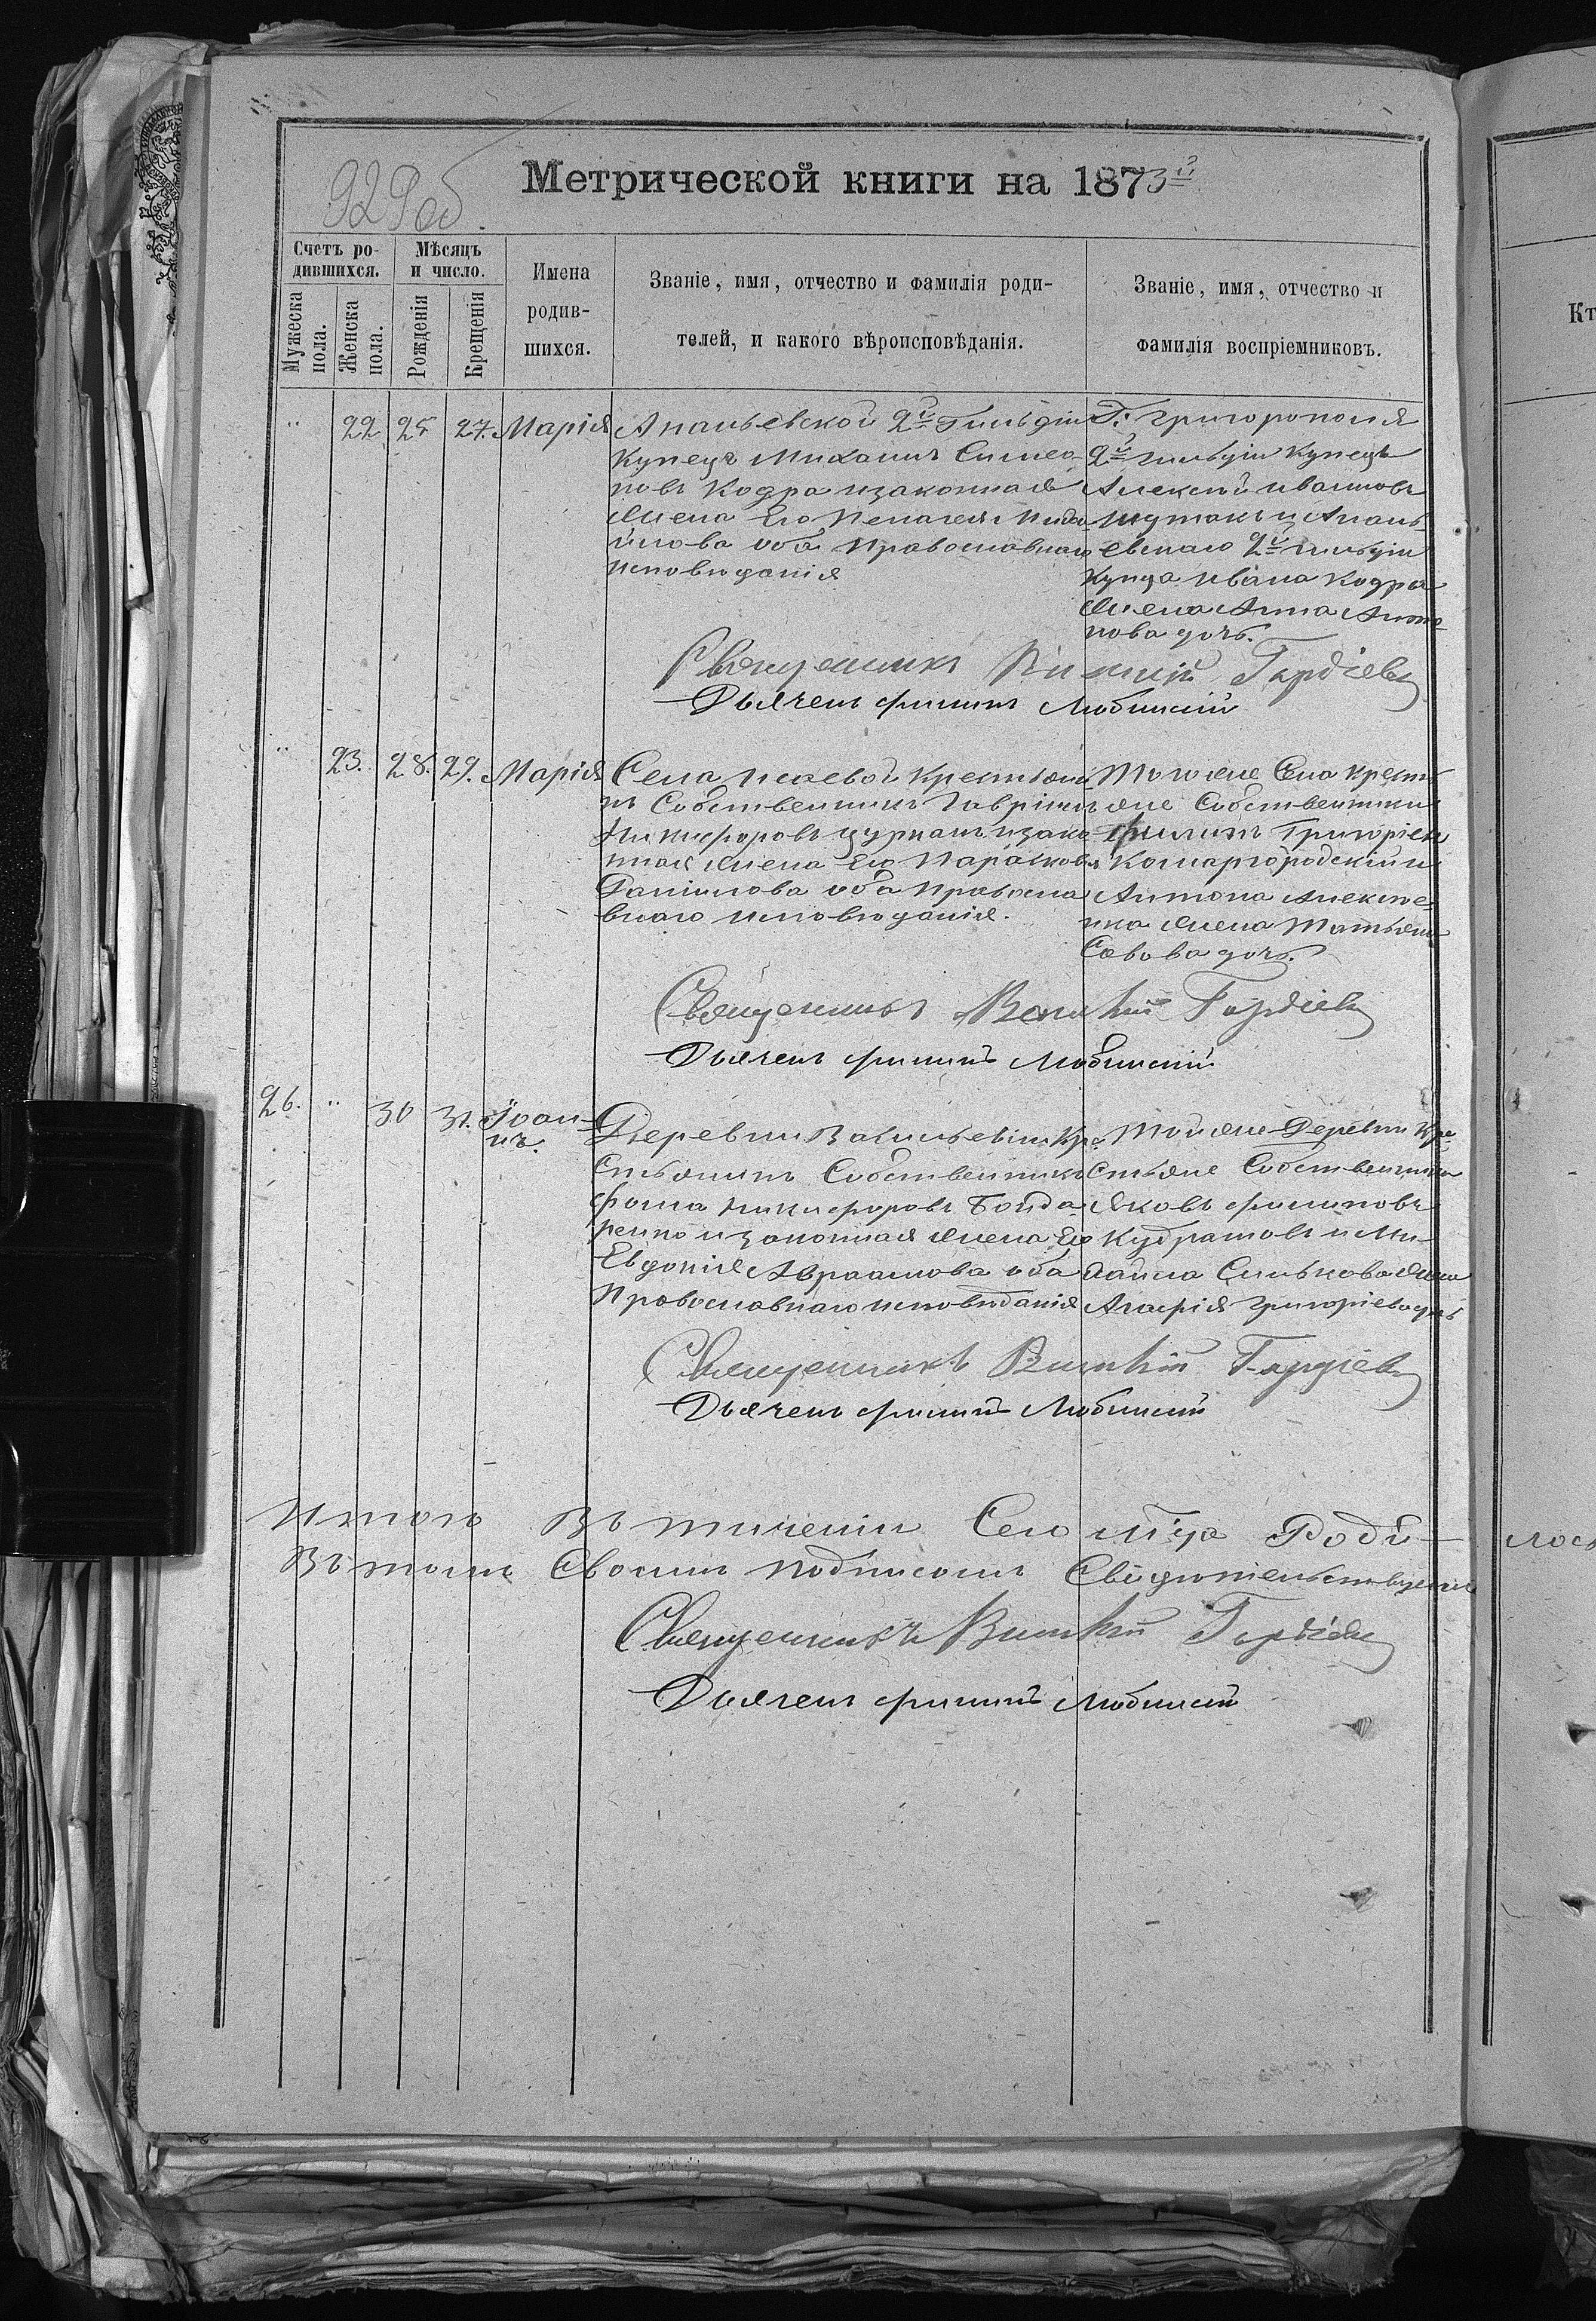 929об.
Метрической книги на 1873й
Счетъ ро-
дившихся.
Мужеска пола.
Женска пола.
Мѣсяцъ
и число.
Рожденія
Крещенія
Имена
родив-
шихся.
Званіе, имя, отчество и фамилія роди-
телей, и какого вѣроисповѣданія.
Званіе, имя, отчество и
фамилія воспріемниковъ.
Кт
" 22 25 27. Марія
Ананьевской 2й Гильдіи
Купецъ Михаилъ Симео-
новъ Кодра изаконная
Жена Его Пелагея Миха-
илова оба Православнаго
исповѣданія
Г. Григорополя
2й гильдіи Купецъ
Алексѣй Ивановъ
и Анань-
евскаго 2й гильдіи
Купца Ивана Кодра
Жена Анна Анто-
нова дочь.
Священникъ Гордіевъ
Дьячекъ Филипъ Любинскій
" 23. 28. 29. Марія
Села Исаевой Крестьяни-
нъ Собственникъ Гавріилъ
Никифоровъ изако-
нная Жена Его Парасковія
Даніилова оба Правосла-
внаго исповѣданія.
Того же Села Кресть-
яне Собственники
Филипъ Григоріевъ
Комаргородскій и
Антона Алексѣе-
нка Жена Татьяна
Савова дочь.
Священникъ Гордіевъ
Дьячекъ Филипъ Любинскій
26. " 30 31. Іоан-
нъ.
Деревни Васильевки Кре-
стьянинъ Собственникъ
Фома Никифоровъ Бонда-
ренко изаконная Жена Его
Евдокія Авраамова оба
Православнаго исповѣданія
Той же Деревни Кре-
стьяне Собственники
Яковъ Филиповъ
Кудрашовъ и Ми-
хаила Синькова Жена
Агафія Григоріева дочь
Священникъ Гордіевъ
Дьячекъ Филипъ Любинскій
Итого Въ теченіи Сего м-ца Роди- лось
Въ томъ Своимъ подписомъ Свидѣтельствуемъ
Священникъ Гордіевъ
Дьячекъ Филипъ Любинскій